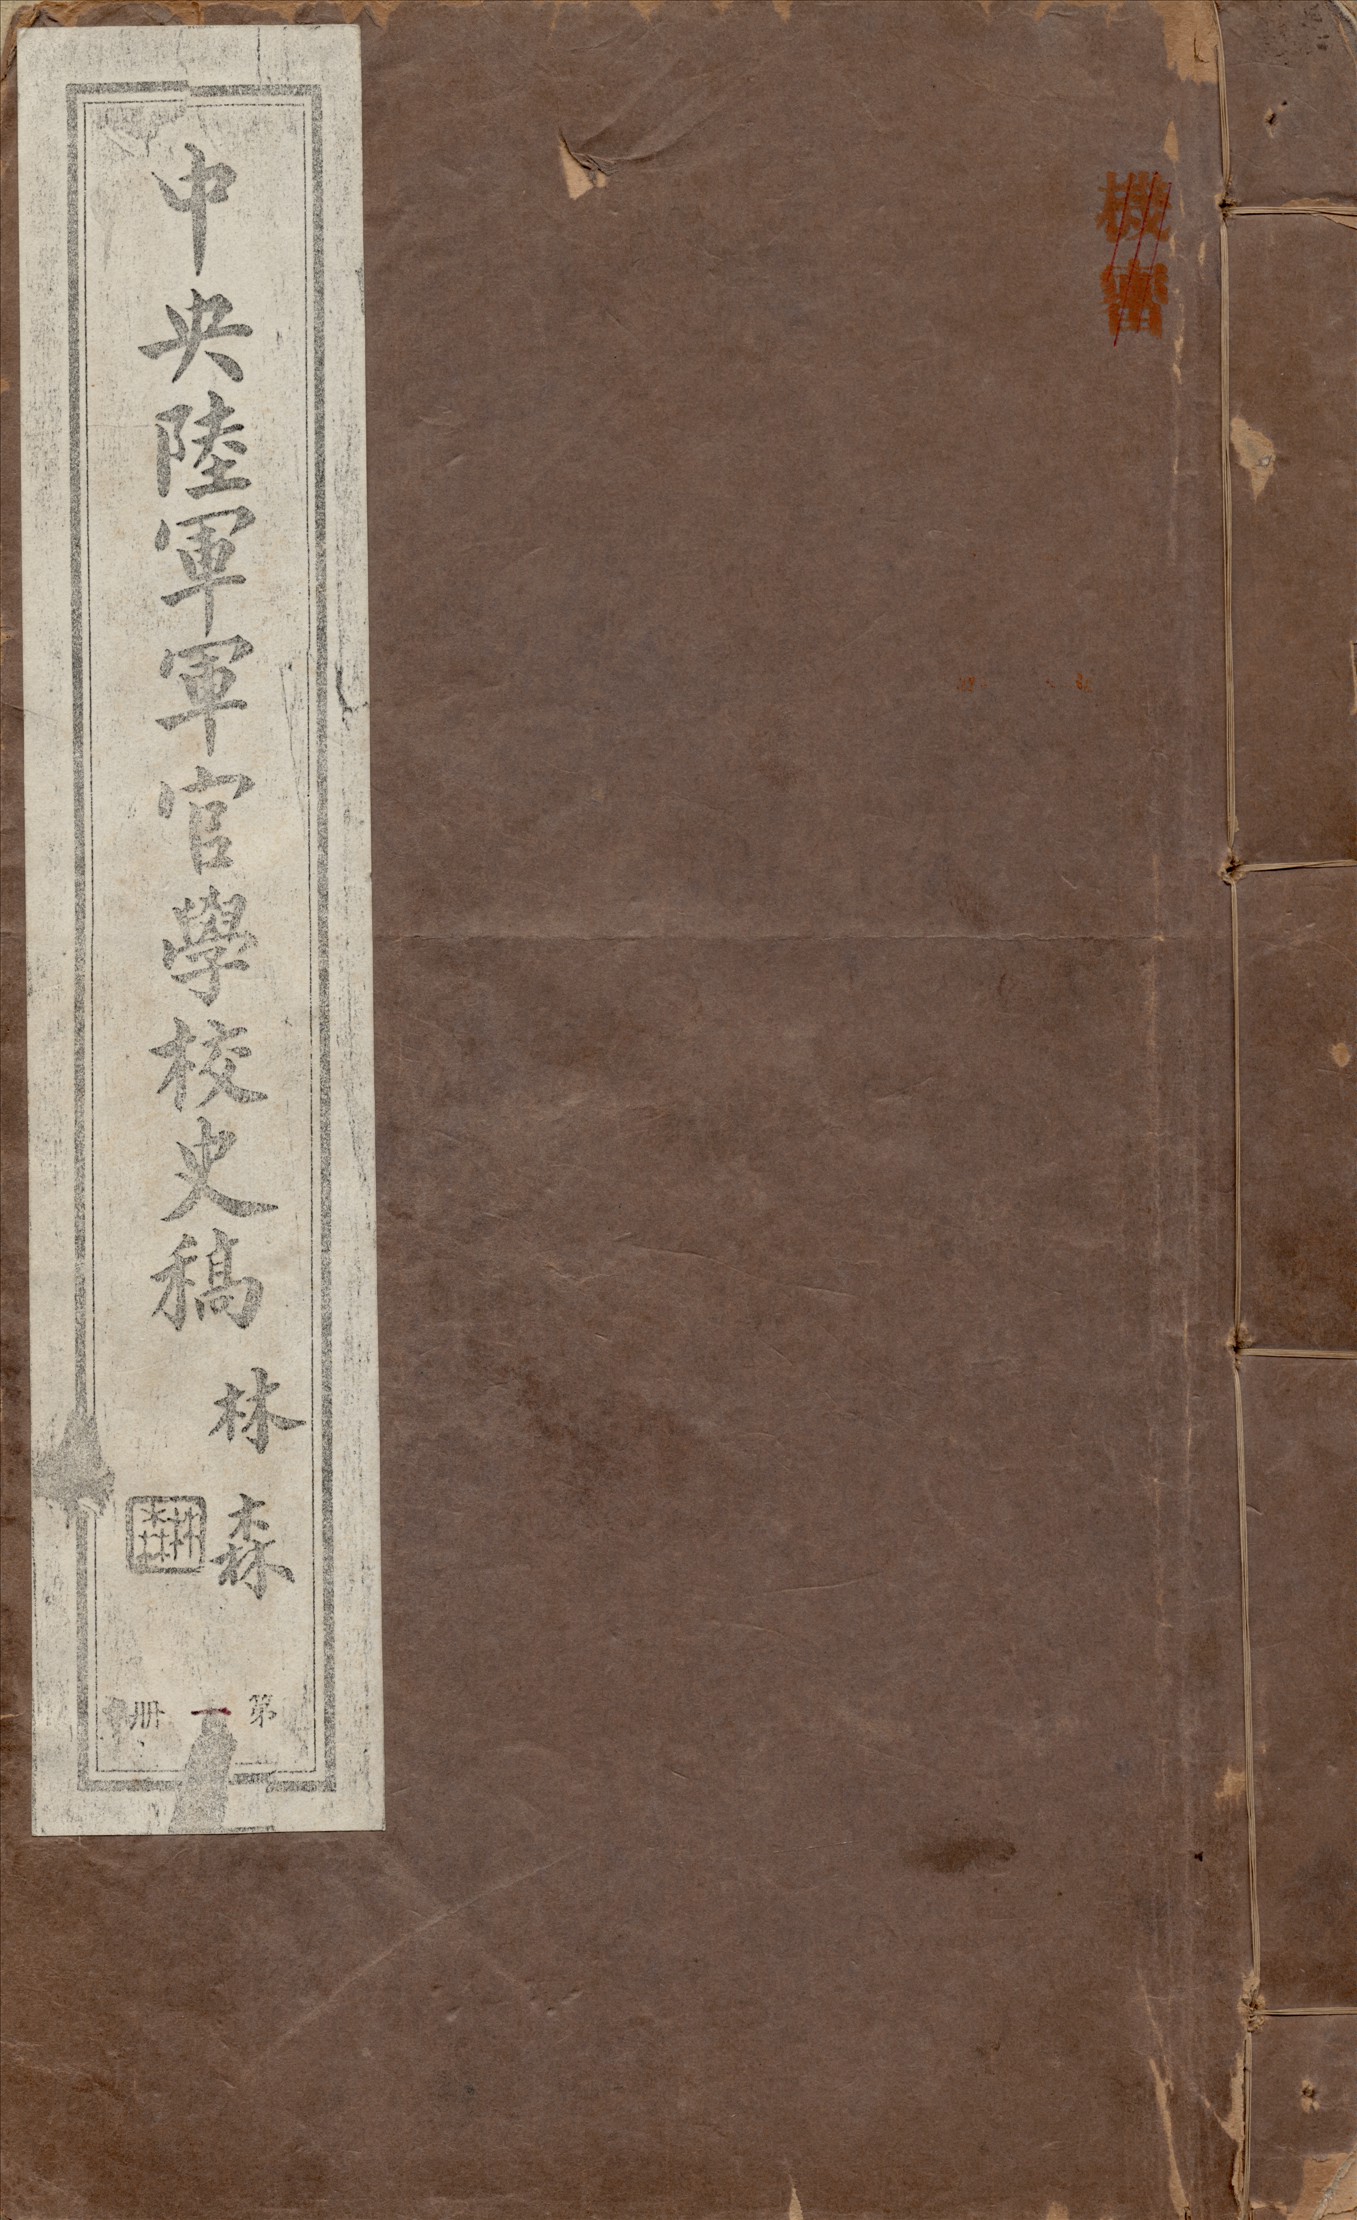 機密
中央陸軍軍官學校史稿
林森
第一册